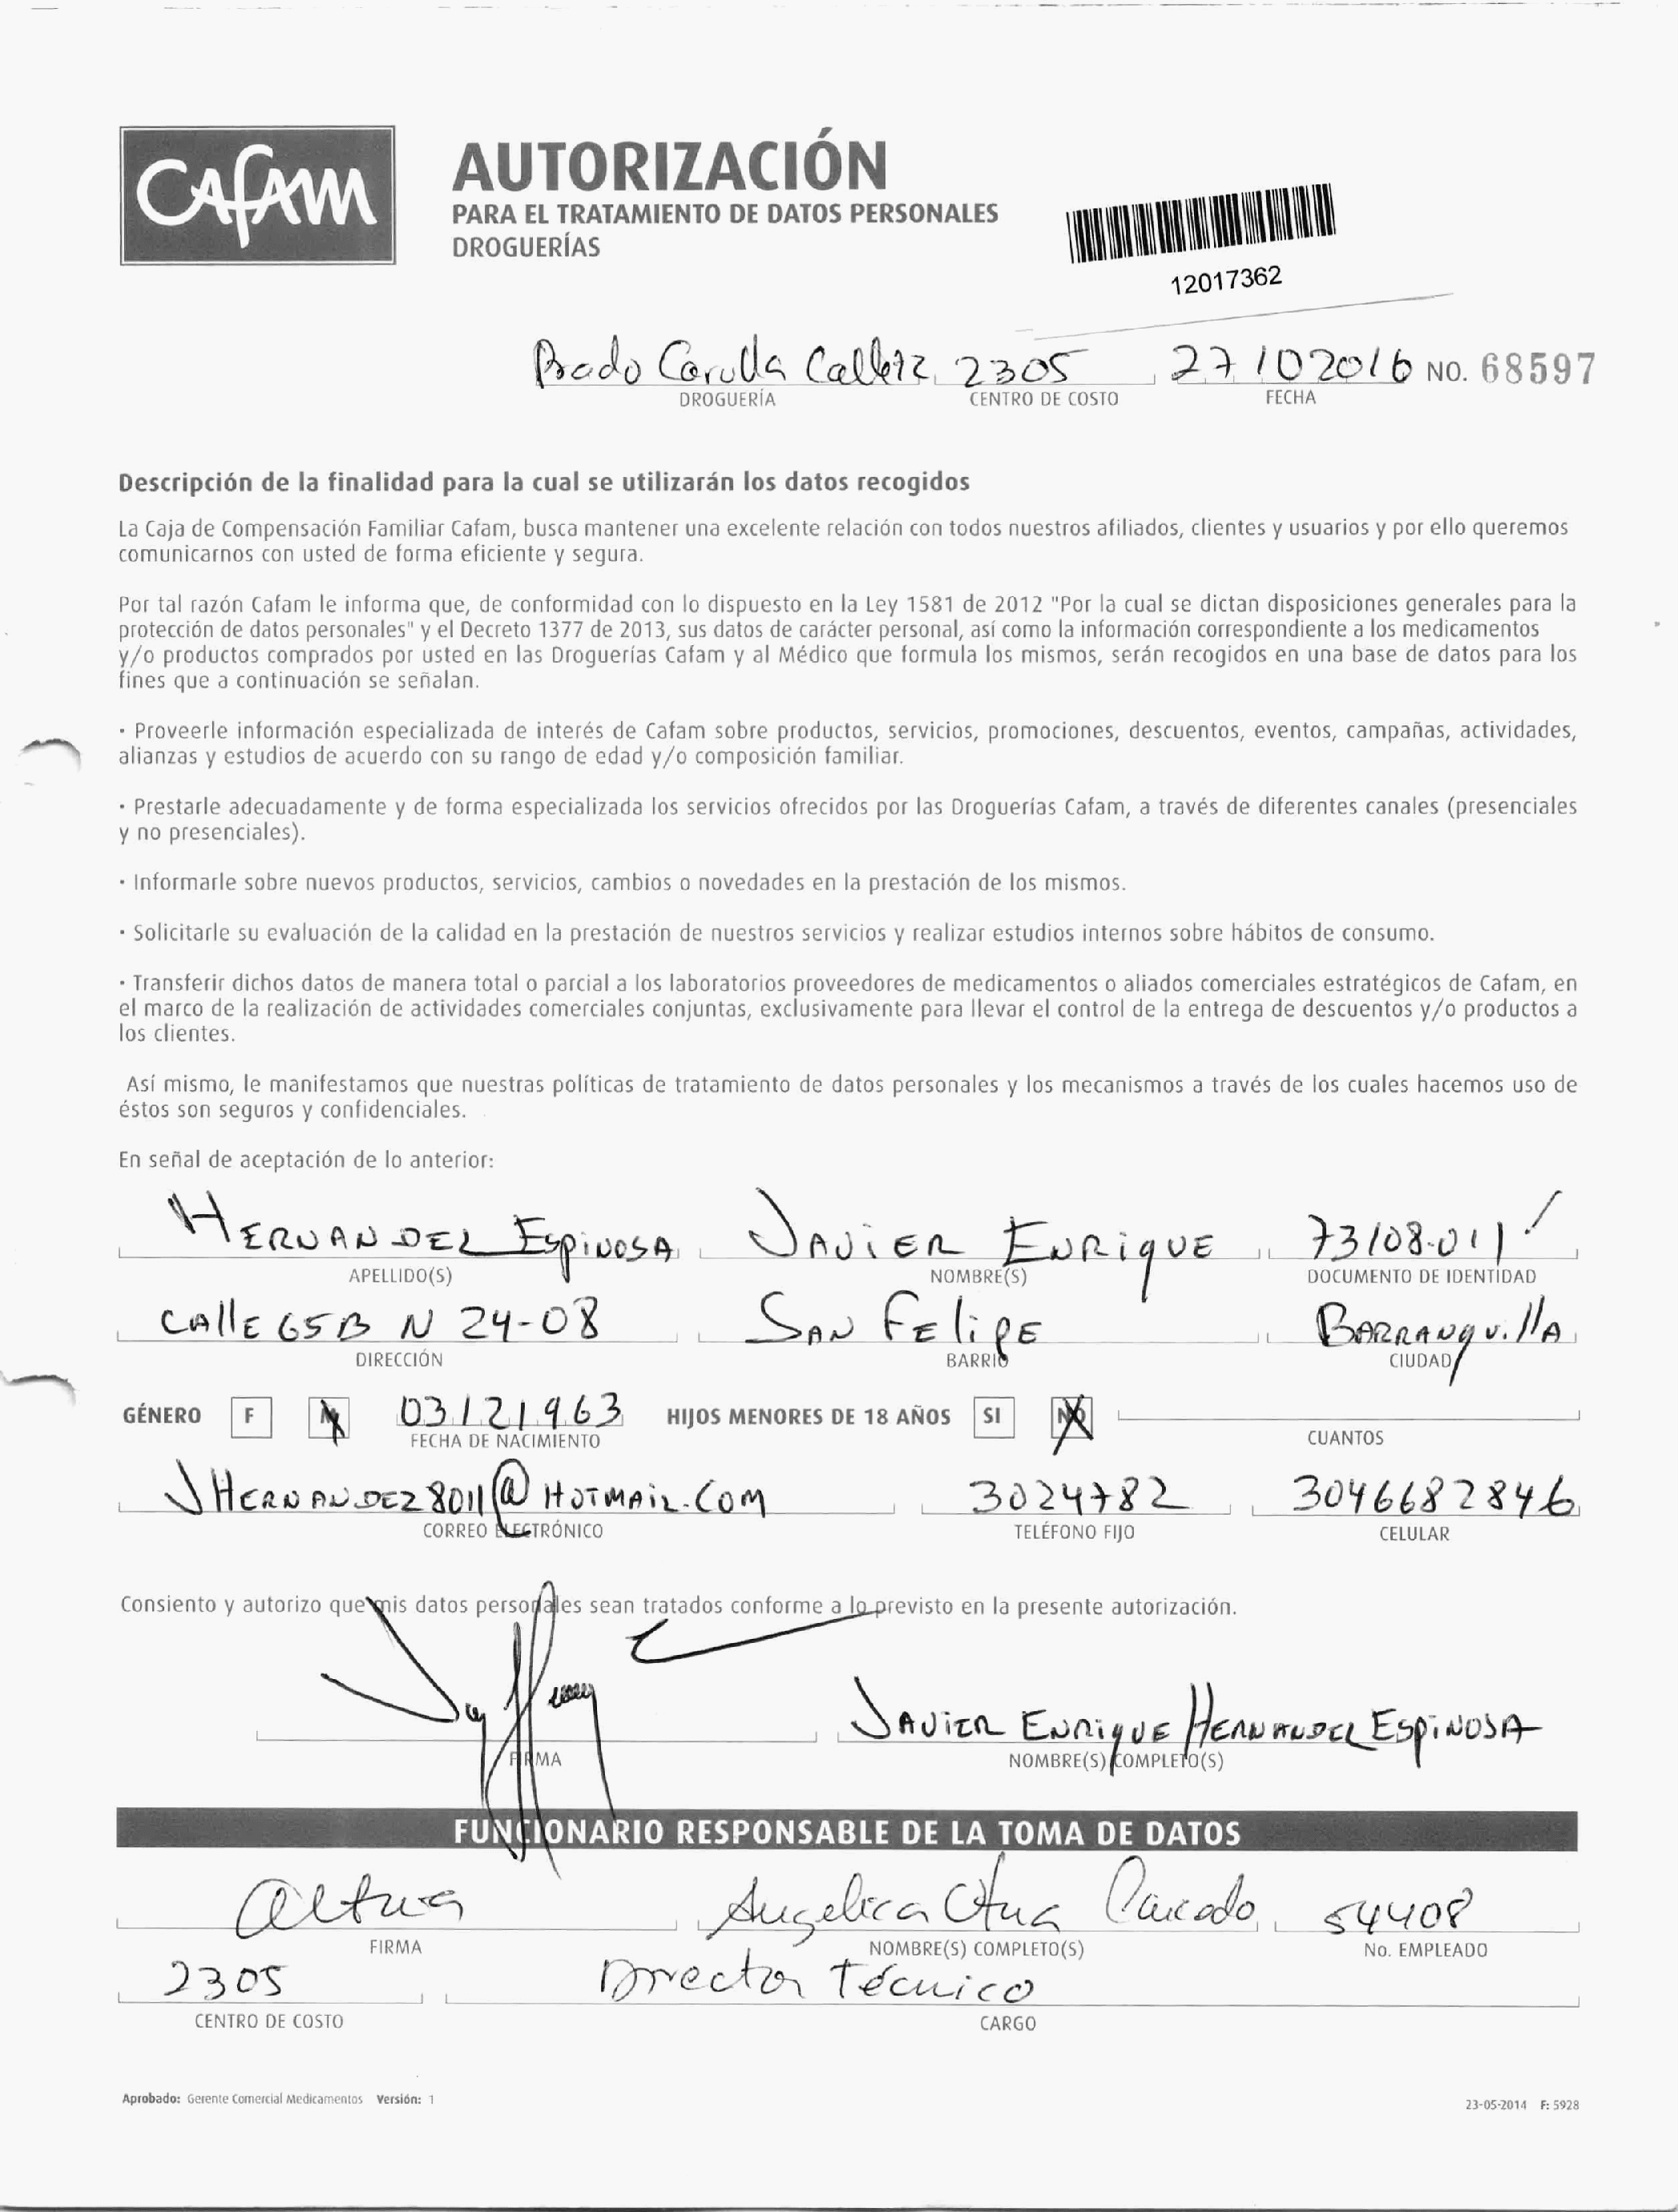 CAFAM
AUTORIZACIÓN
PARA EL TRATAMIENTO DE DATOS PERSONALES
DROGUERÍAS
12017362
Prado Carulla Calle 72 2305 27 10 2016 NO. 68597
DROGUERÍA CENTRO DE COSTO FECHA
Descripción de la finalidad para la cual se utilizarán los datos recogidos
La Caja de Compensación Familiar Cafam, busca mantener una excelente relación con todos nuestros afiliados, clientes y usuarios y por ello queremos
comunicarnos con usted de forma eficiente y segura.
Por tal razón Cafam le informa que, de conformidad con lo dispuesto en la Ley 1581 de 2012 "Por la cual se dictan disposiciones generales para la
protección de datos personales" y el Decreto 1377 de 2013, sus datos de carácter personal, así como la información correspondiente a los medicamentos
y/o productos comprados por usted en las Droguerías Cafam y al Médico que formula los mismos, serán recogidos en una base de datos para los
fines que a continuación se señalan.
· Proveerle información especializada de interés de Cafam sobre productos, servicios, promociones, descuentos, eventos, campañas, actividades,
alianzas y estudios de acuerdo con su rango de edad y/o composición familiar.
· Prestarle adecuadamente y de forma especializada los servicios ofrecidos por las Droguerías Cafam, a través de diferentes canales (presenciales
y no presenciales).
· Informarle sobre nuevos productos, servicios, cambios o novedades en la prestación de los mismos.
· Solicitarle su evaluación de la calidad en la prestación de nuestros servicios y realizar estudios internos sobre hábitos de consumo.
· Transferir dichos datos de manera total o parcial a los laboratorios proveedores de medicamentos o aliados comerciales estratégicos de Cafam, en
el marco de la realización de actividades comerciales conjuntas, exclusivamente para llevar el control de la entrega de descuentos y/o productos a
los clientes.
Así mismo, le manifestamos que nuestras políticas de tratamiento de datos personales y los mecanismos a través de los cuales hacemos uso de
éstos son seguros y confidenciales.
En señal de aceptación de lo anterior:
HERNANDEZ ESPINOSA JAVIER ENRIQUE 73108.011
APELLIDO(S) NOMBRE(S) DOCUMENTO DE IDENTIDAD
CALLE 65B N 24-08 SAN FELIPE BARRANQUILLA
DIRECCIÓN BARRIO CIUDAD
GÉNERO F M 03121963 HIJOS MENORES DE 18 AÑOS SI NO
FECHA DE NACIMIENTO CUANTOS
JHERNANDEZ8011@HOTMAIL.COM 3024782 3046682846
CORREO ELECTRÓNICO TELÉFONO FIJO CELULAR
Consiento y autorizo que mis datos personales sean tratados conforme a lo previsto en la presente autorización.
JAVIER ENRIQUE HERNANDEZ ESPINOSA
FIRMA NOMBRE(S) COMPLETO(S)
FUNCIONARIO RESPONSABLE DE LA TOMA DE DATOS
Angelica Caicedo 54408
FIRMA NOMBRE(S) COMPLETO(S) No. EMPLEADO
2305 Director Técnico
CENTRO DE COSTO CARGO
Aprobado: Gerente Comercial Medicamentos Versión: 1
23-05-2014 F: 5928